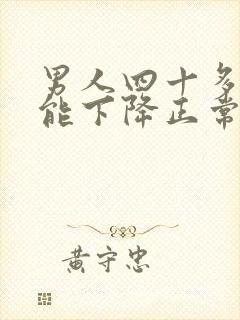 男人四十多
能下降正常
黄守忠